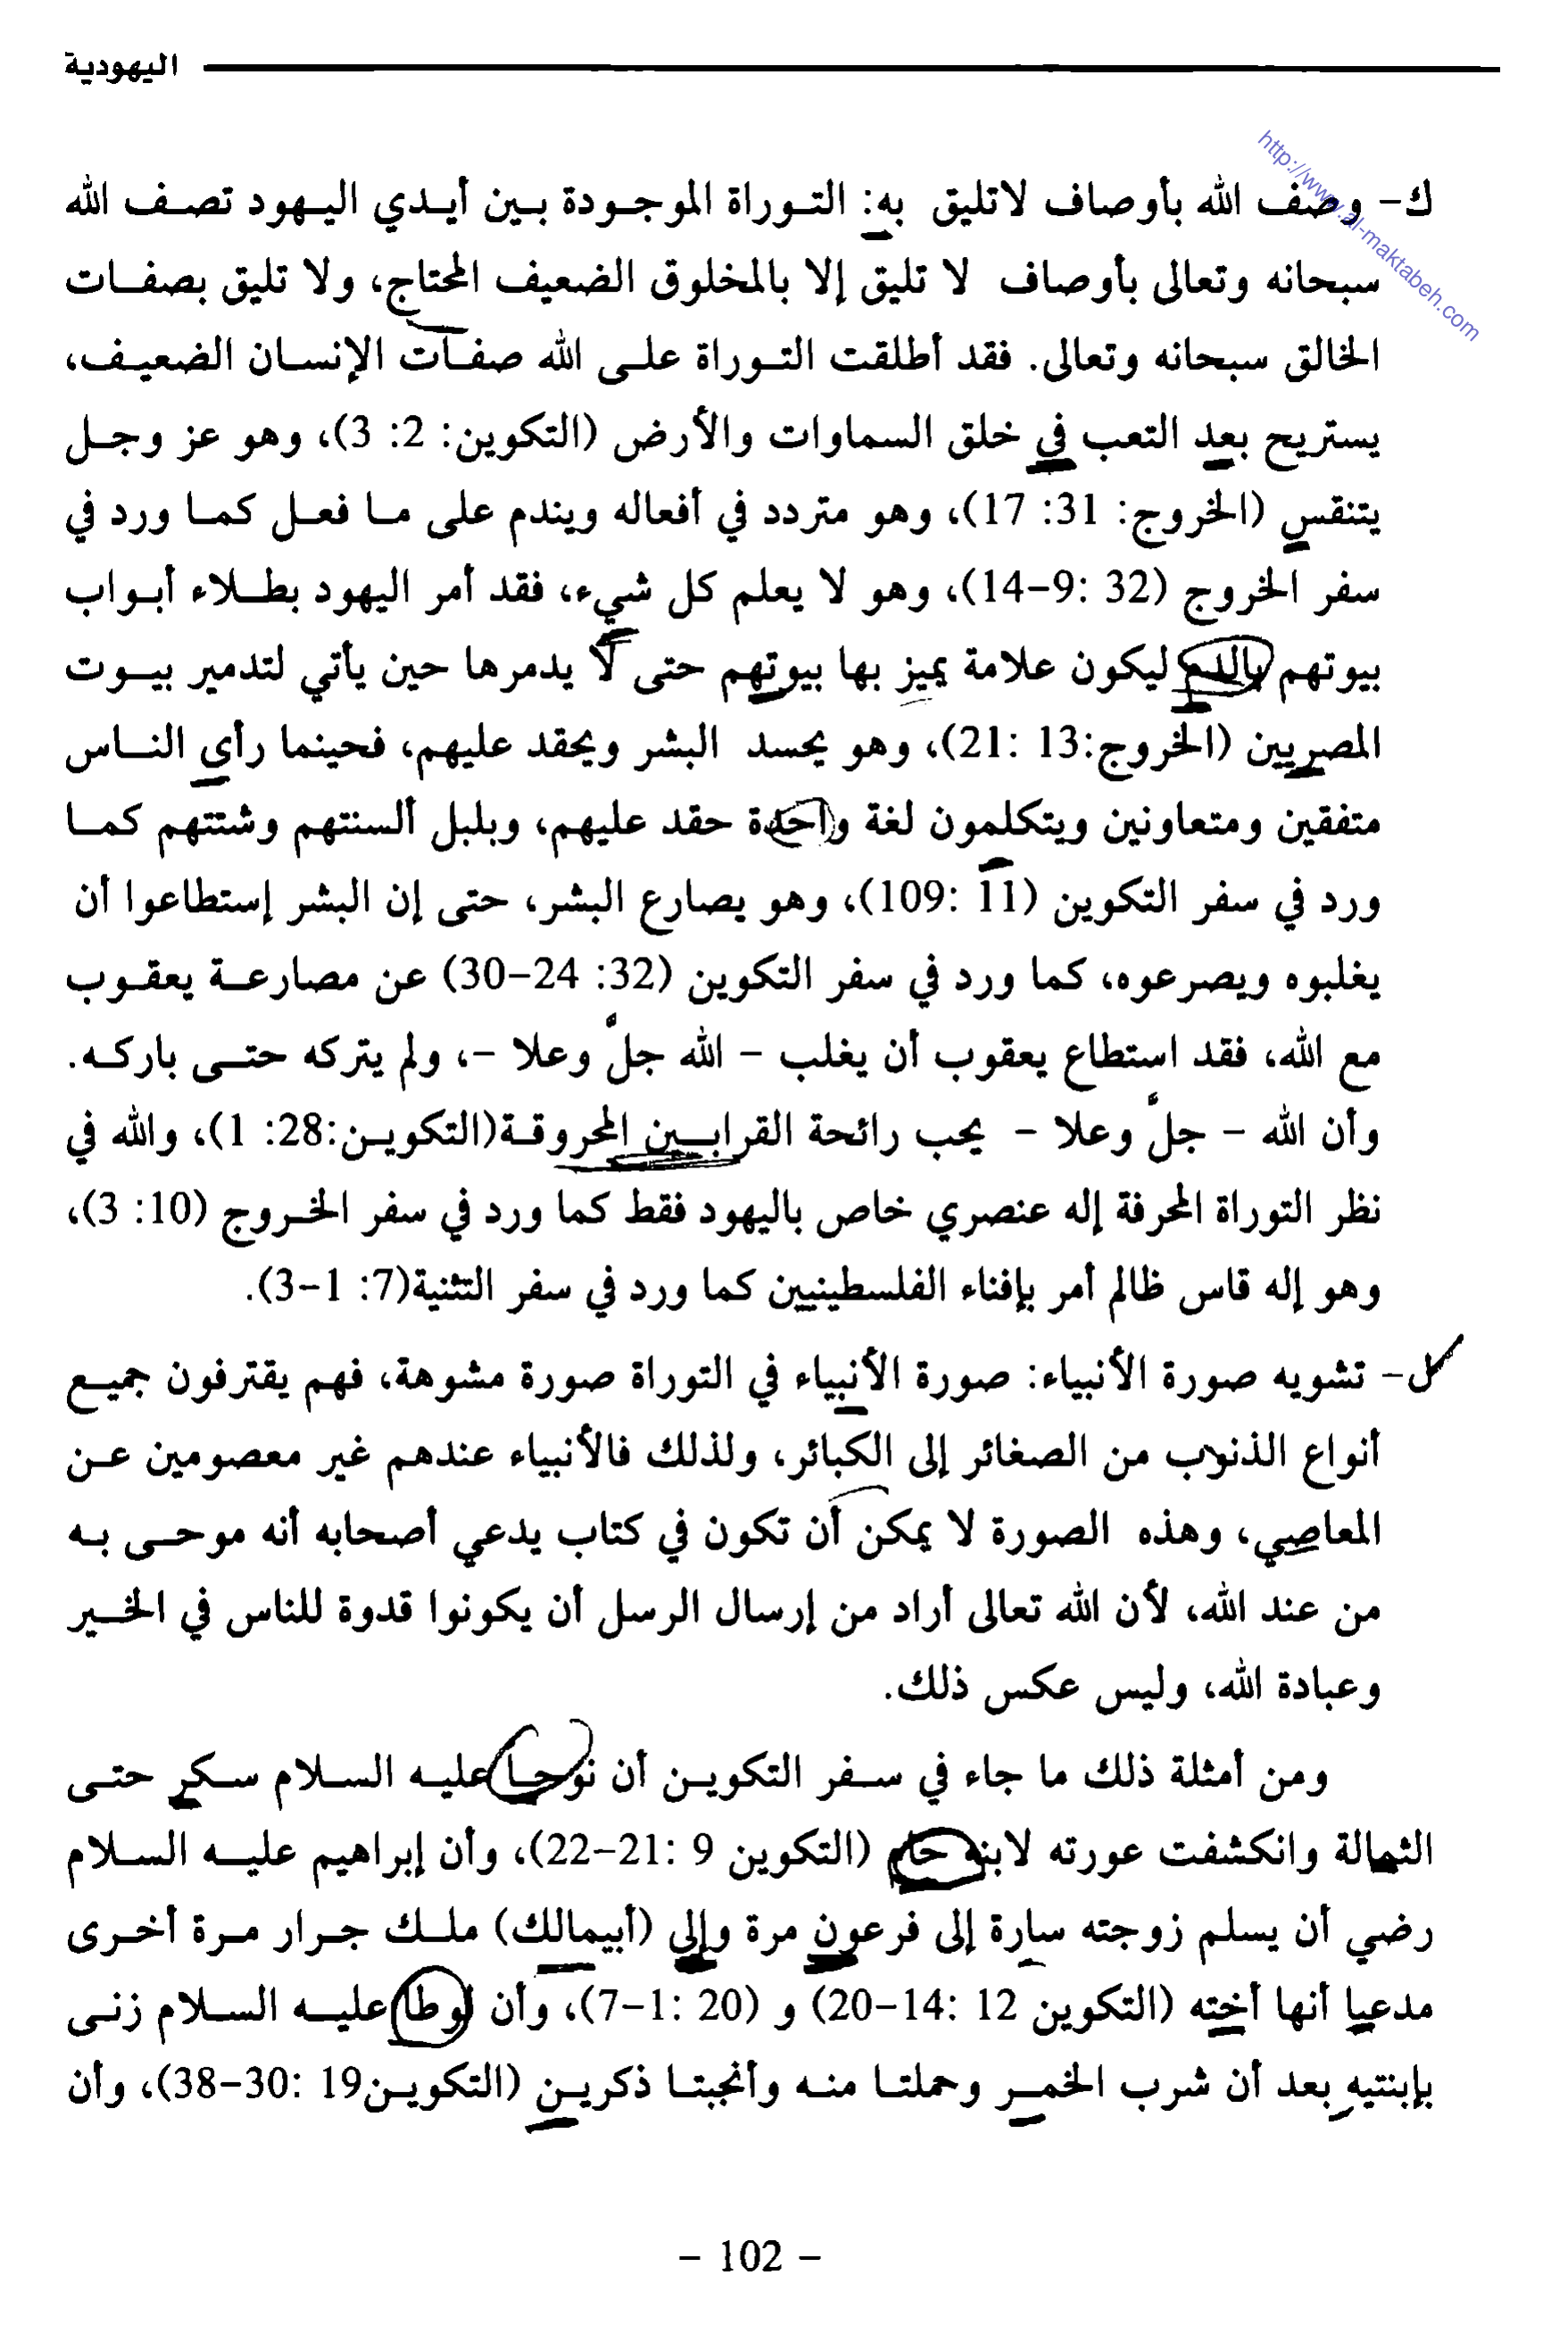 اليهودية
http://www.al-maktabeh.com
ك- وصف الله بأوصاف لاتليق به: التوراة الموجودة بين أيدي اليهود تصف الله
سبحانه وتعالى بأوصاف لا تليق إلا بالمخلوق الضعيف المحتاج، ولا تليق بصفات
الخالق سبحانه وتعالى. فقد أطلقت التوراة على الله صفات الإنسان الضعيف،
يستريح بعد التعب في خلق السماوات والأرض (التكوين: 2: 3)، وهو عز وجل
يتنقس (الخروج: 31: 17)، وهو متردد في أفعاله ويندم على ما فعل كما ورد في
سفر الخروج (32 :9-14)، وهو لا يعلم كل شيء، فقد أمر اليهود بطلاء أبواب
بيوتهم بالدم ليكون علامة يميز بها بيوتهم حتى لا يدمرها حين يأتي لتدمير بيوت
المصريين (الخروج:13 :21)، وهو يحسد البشر ويحقد عليهم، فحينما رأى الناس
متفقين ومتعاونين ويتكلمون لغة واحدة حقد عليهم، وبلبل ألسنتهم وشتتهم كما
ورد في سفر التكوين (11 :109)، وهو يصارع البشر، حتى إن البشر إستطاعوا أن
يغلبوه ويصرعوه، كما ورد في سفر التكوين (32: 24-30) عن مصارعة يعقوب
مع الله، فقد استطاع يعقوب أن يغلب - الله جلّ وعلا -، ولم يتركه حتى باركه.
وأن الله - جلّ وعلا - يحب رائحة القرابين المحروقة(التكوين:28: 1)، والله في
نظر التوراة المحرفة إله عنصري خاص باليهود فقط كما ورد في سفر الخروج (10: 3)،
وهو إله قاس ظالم أمر بإفناء الفلسطينيين كما ورد في سفر التثنية(7: 1-3).
ل- تشويه صورة الأنبياء: صورة الأنبياء في التوراة صورة مشوهة، فهم يقترفون جميع
أنواع الذنوب من الصغائر إلى الكبائر، ولذلك فالأنبياء عندهم غير معصومين عن
المعاصي، وهذه الصورة لا يمكن أن تكون في كتاب يدعي أصحابه أنه موحى به
من عند الله، لأن الله تعالى أراد من إرسال الرسل أن يكونوا قدوة للناس في الخير
وعبادة الله، وليس عكس ذلك.
ومن أمثلة ذلك ما جاء في سفر التكوين أن نوحا عليه السلام سكر حتى
الثمالة وانكشفت عورته لابنه حام (التكوين 9 :21-22)، وأن إبراهيم عليه السلام
رضي أن يسلم زوجته سارة إلى فرعون مرة وإلى (أبيمالك) ملك جرار مرة أخرى
مدعيا أنها أخته (التكوين 12 :14-20) و (20 :1-7)، وأن لوطا عليه السلام زنى
بإبنتيه بعد أن شرب الخمر وحملتا منه وأنجبتا ذكرين (التكوين19 :30-38)، وأن
- 102 -